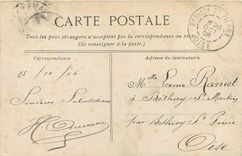 CARTE POSTALE
Tous les pays étrangers n'acceptent pas la correspondance au recto
(Se renseigner à la poste).
Correspondance
Adresse du destinataire
25/10/06
Sincères Salutations
Mlle Léonie Ramet
à Béthisy St Martin
par Béthisy St Pierre
Oise